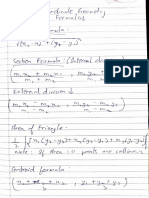 Coordinate Geometry
Formulas
formula:
(x₂ - x₁)² + (y₂ - y₁)²
Section Formula: (Internal division)
m₁x₂ + m₂x₁ , m₁y₂ +
m₁ + m₂
External division
m₁x₂ - m₂x₁ , m₁y₂ -
m₁ - m₂
Area of triangle:
1/2 [x₁(y₂-y₃)+x₂(y₃-y₁)+x₃(y₁
Note: If Area 0 points are collinear
Centroid formula
x₁ + x₂ + x₃ , y₁ + y₂ + y₃